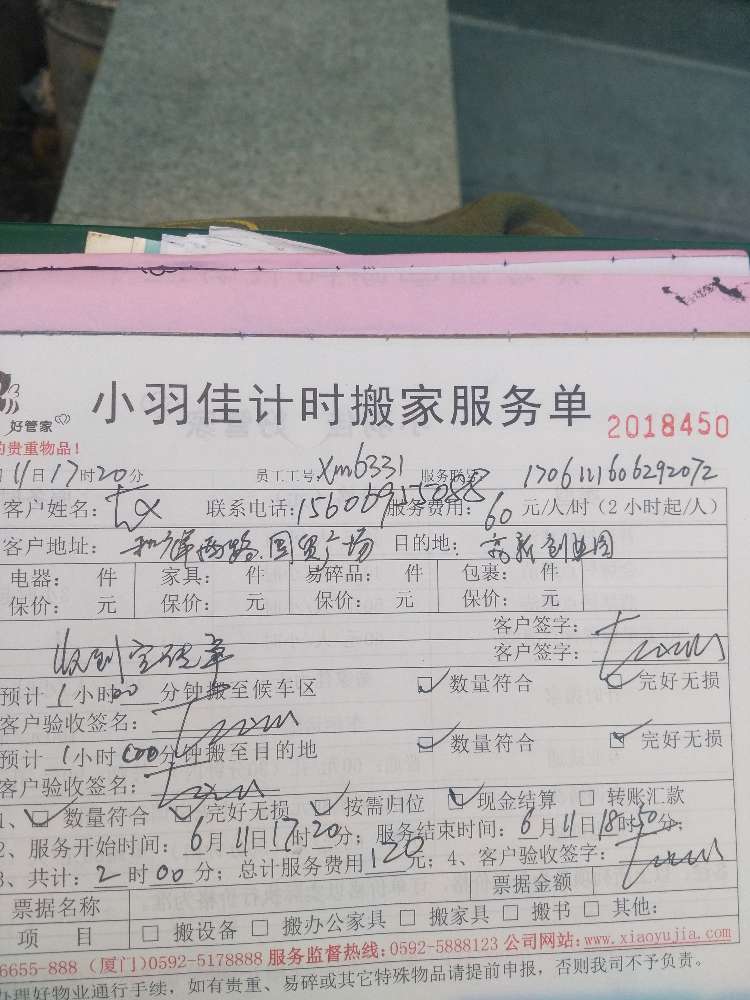 好管家
小羽佳计时搬家服务单 2018450
的贵重物品！
月11日17时20分 员工工号:Xm6331 服务联号: 1706111606292072
客户姓名: 联系电话:15606955088 服务费用:60元/人/时(2小时起/人)
客户地址: 路.国贸广场 目的地: 高新创业园
电器: 件 家具: 件 易碎品: 件 包裹: 件
保价: 元 保价: 元 保价: 元 保价: 元
客户签字:
收到 客户签字:
预计1小时00分钟搬至候车区 ☑数量符合 ☑完好无损
客户验收签名:
预计1小时00分钟搬至目的地 ☑数量符合 ☑完好无损
客户验收签名:
1、☑数量符合 ☑完好无损 ☑按需归位 ☑现金结算 □转账汇款
2、服务开始时间:6月11日17时20分; 服务结束时间:6月11日18时50分;
3、共计:2时00分; 总计服务费用120元; 4、客户验收签字:
票据名称 票据金额
项 目 □搬设备 □搬办公家具 □搬家具 □搬书 □其他:
6655-888 (厦门)0592-5178888 服务监督热线:0592-5888123 公司网站:www.xiaoyujia.com
办理好物业通行手续，如有贵重、易碎或其它特殊物品请提前申报，否则我司不予负责。